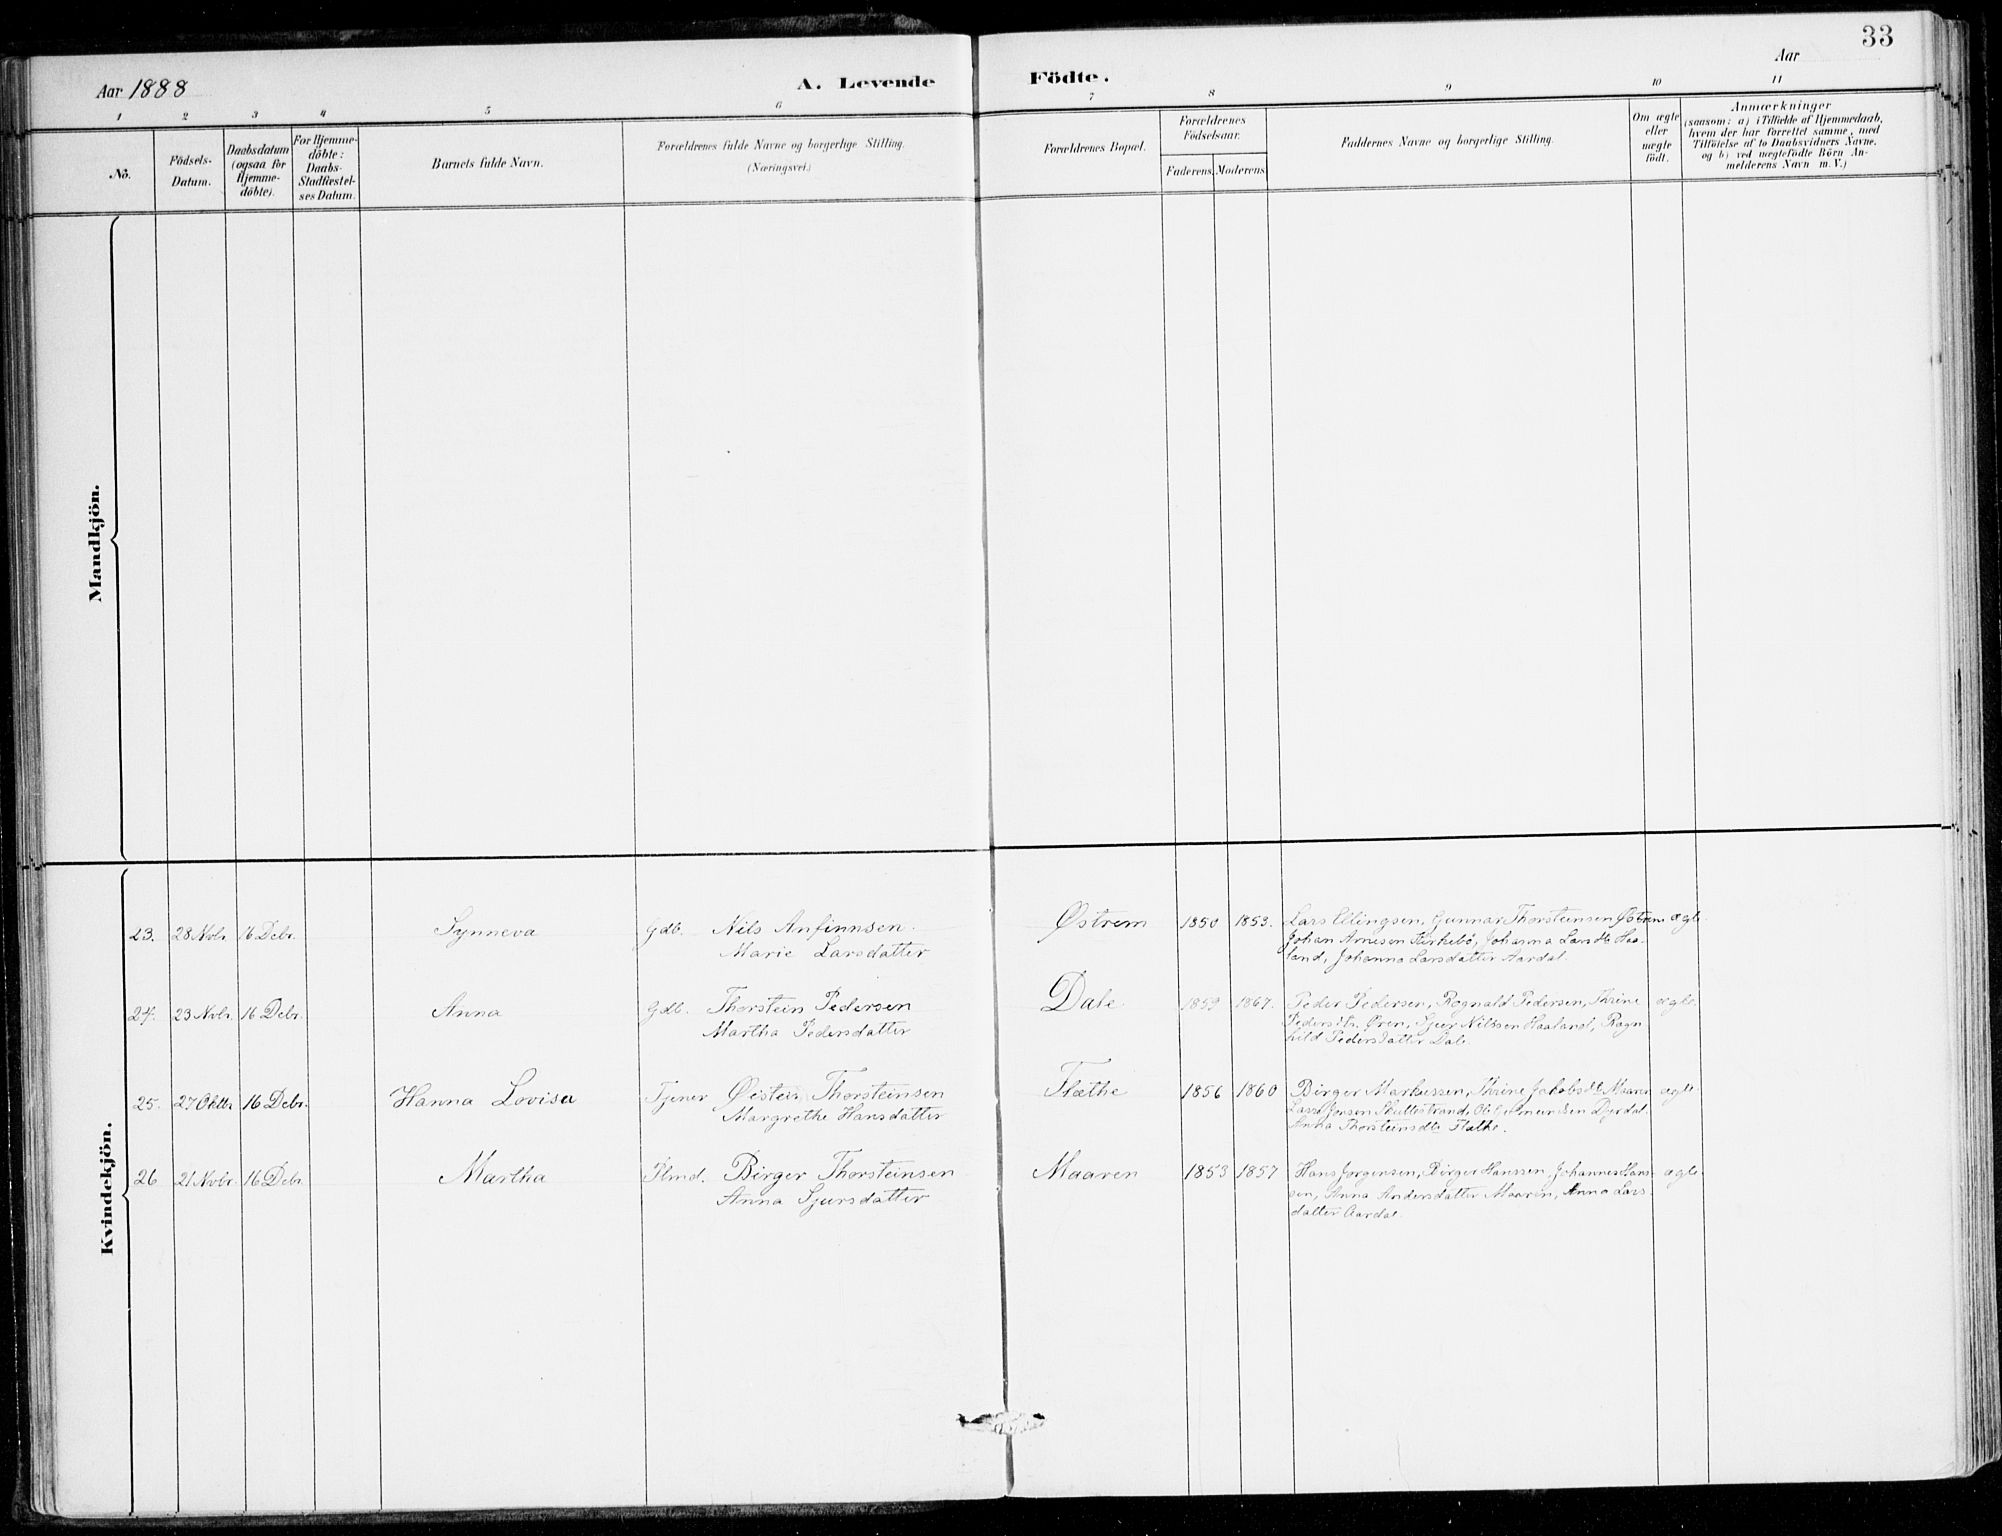 33
Aar 1888
A. Levende Födte.
Aar
1 2 3 4 5 6 7 8 9 10 11
No.
Födsels-Datum.
Daabsdatum (ogsaa for Hjemme-döbte).
For Hjemme-döbte: Daabs-Stadfæstel-ses Datum.
Barnets fulde Navn.
Forældrenes fulde Navne og borgerlige Stilling.
(Næringsvei.)
Forældrenes Bopæl.
Forældrenes Födselsaar.
Faderens. Moderens.
Faddernes Navne og borgerlige Stilling.
Om ægte eller uægte födt.
Anmærkninger
(saasom: a) i Tilfælde af Hjemmedaab,
hvem der har forrettet samme, med
Tilföielse af to Daabsvidners Navne,
og b) ved uægtefödte Börn An-
melderens Navn m. V.)
Mandkjön.
Kvindekjön.
23. 28 Novbr. 16 Debr. Synneva Gdb. Nils Anfinnsen. Østrem 1850 1853. Lars Ellingsen, Gunnar Thorsteinsen Østrem ægte.
Marie Larsdatter Johan Arnesen Kirkebö, Johanna Larsdtr Haa-
land, Johanna Larsdatter Aardal.
24. 23 Novbr. 16 Debr. Anna Gdb. Thorstein Pedersen Dale 1859 1867. Peder Pedersen, Rognald Pedersen, Thrine ægte.
Martha Pedersdatter Pedersdtr. Øren, Sjur Nilssen Haaland, Ragn
hild Pedersdatter Dale.
25. 27 Oktbr 16 Debr. Hanna Lovisa Tjener Øistein Thorsteinsen Flæthe 1856 1860 Birger Markussen, Thrine Jakobsdtr Maaren ægte
Margrethe Hansdatter Lasse Jonsen Dyrdal.
Anna Thorsteinsdtr Flæthe.
26 21 Novbr. 16 Debr. Martha Plmd. Birger Thorsteinsen Maaren 1853 1857 Hans Jorgensen, Birger Hanssen, Johannes Hans- ægte
Anna Sjursdatter sen, Anna Andersdatter Maaren, Anna Lars-
datter Aardal.